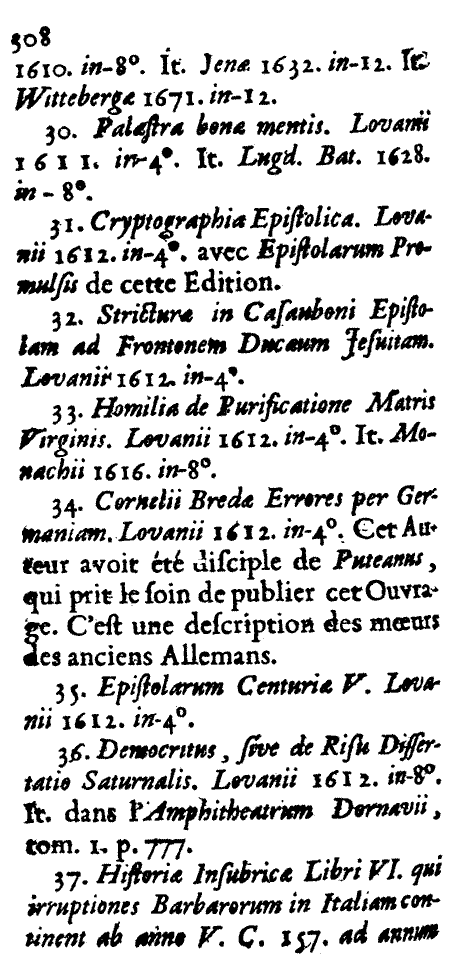 308
1610. in-8°. It. Jenæ 1632. in-12. It.
Wittebergæ 1671. in-12.
30. Palæſtra bonæ mentis. Lovanii
1611. in-4°. It. Lugd. Bat. 1628.
in-8°.
31. Cryptographia Epiſtolica. Lova-
nii 1612. in-4°. avec Epiſtolarum Pro-
mulſis de cette Edition.
32. Strictura in Caſauboni Epiſto-
lam ad Frontonem Ducaum Jeſuitam.
Lovanii 1612. in-4°.
33. Homilia de Purificatione Matris
Virginis. Lovanii 1612. in-4°. It. Mo-
nachii 1616. in-8°.
34. Cornelii Bredæ Errores per Ger-
maniam. Lovanii 1612. in-4°. Cet Au-
teur avoit été diſciple de Puteanus,
qui prit le ſoin de publier cet Ouvra-
ge. C'eſt une deſcription des mœurs
des anciens Allemans.
35. Epiſtolarum Centuriæ V. Lova-
nii 1612. in-4°.
36. Democritus, ſive de Riſu Diſſer-
tatio Saturnalis. Lovanii 1612. in-8°.
It. dans l'Amphitheatrum Dornavii,
tom. 1. p. 777.
37. Hiſtoriæ Inſubricæ Libri VI. qui
irruptiones Barbarorum in Italiam con-
tinent ab anno V. C. 157. ad annum